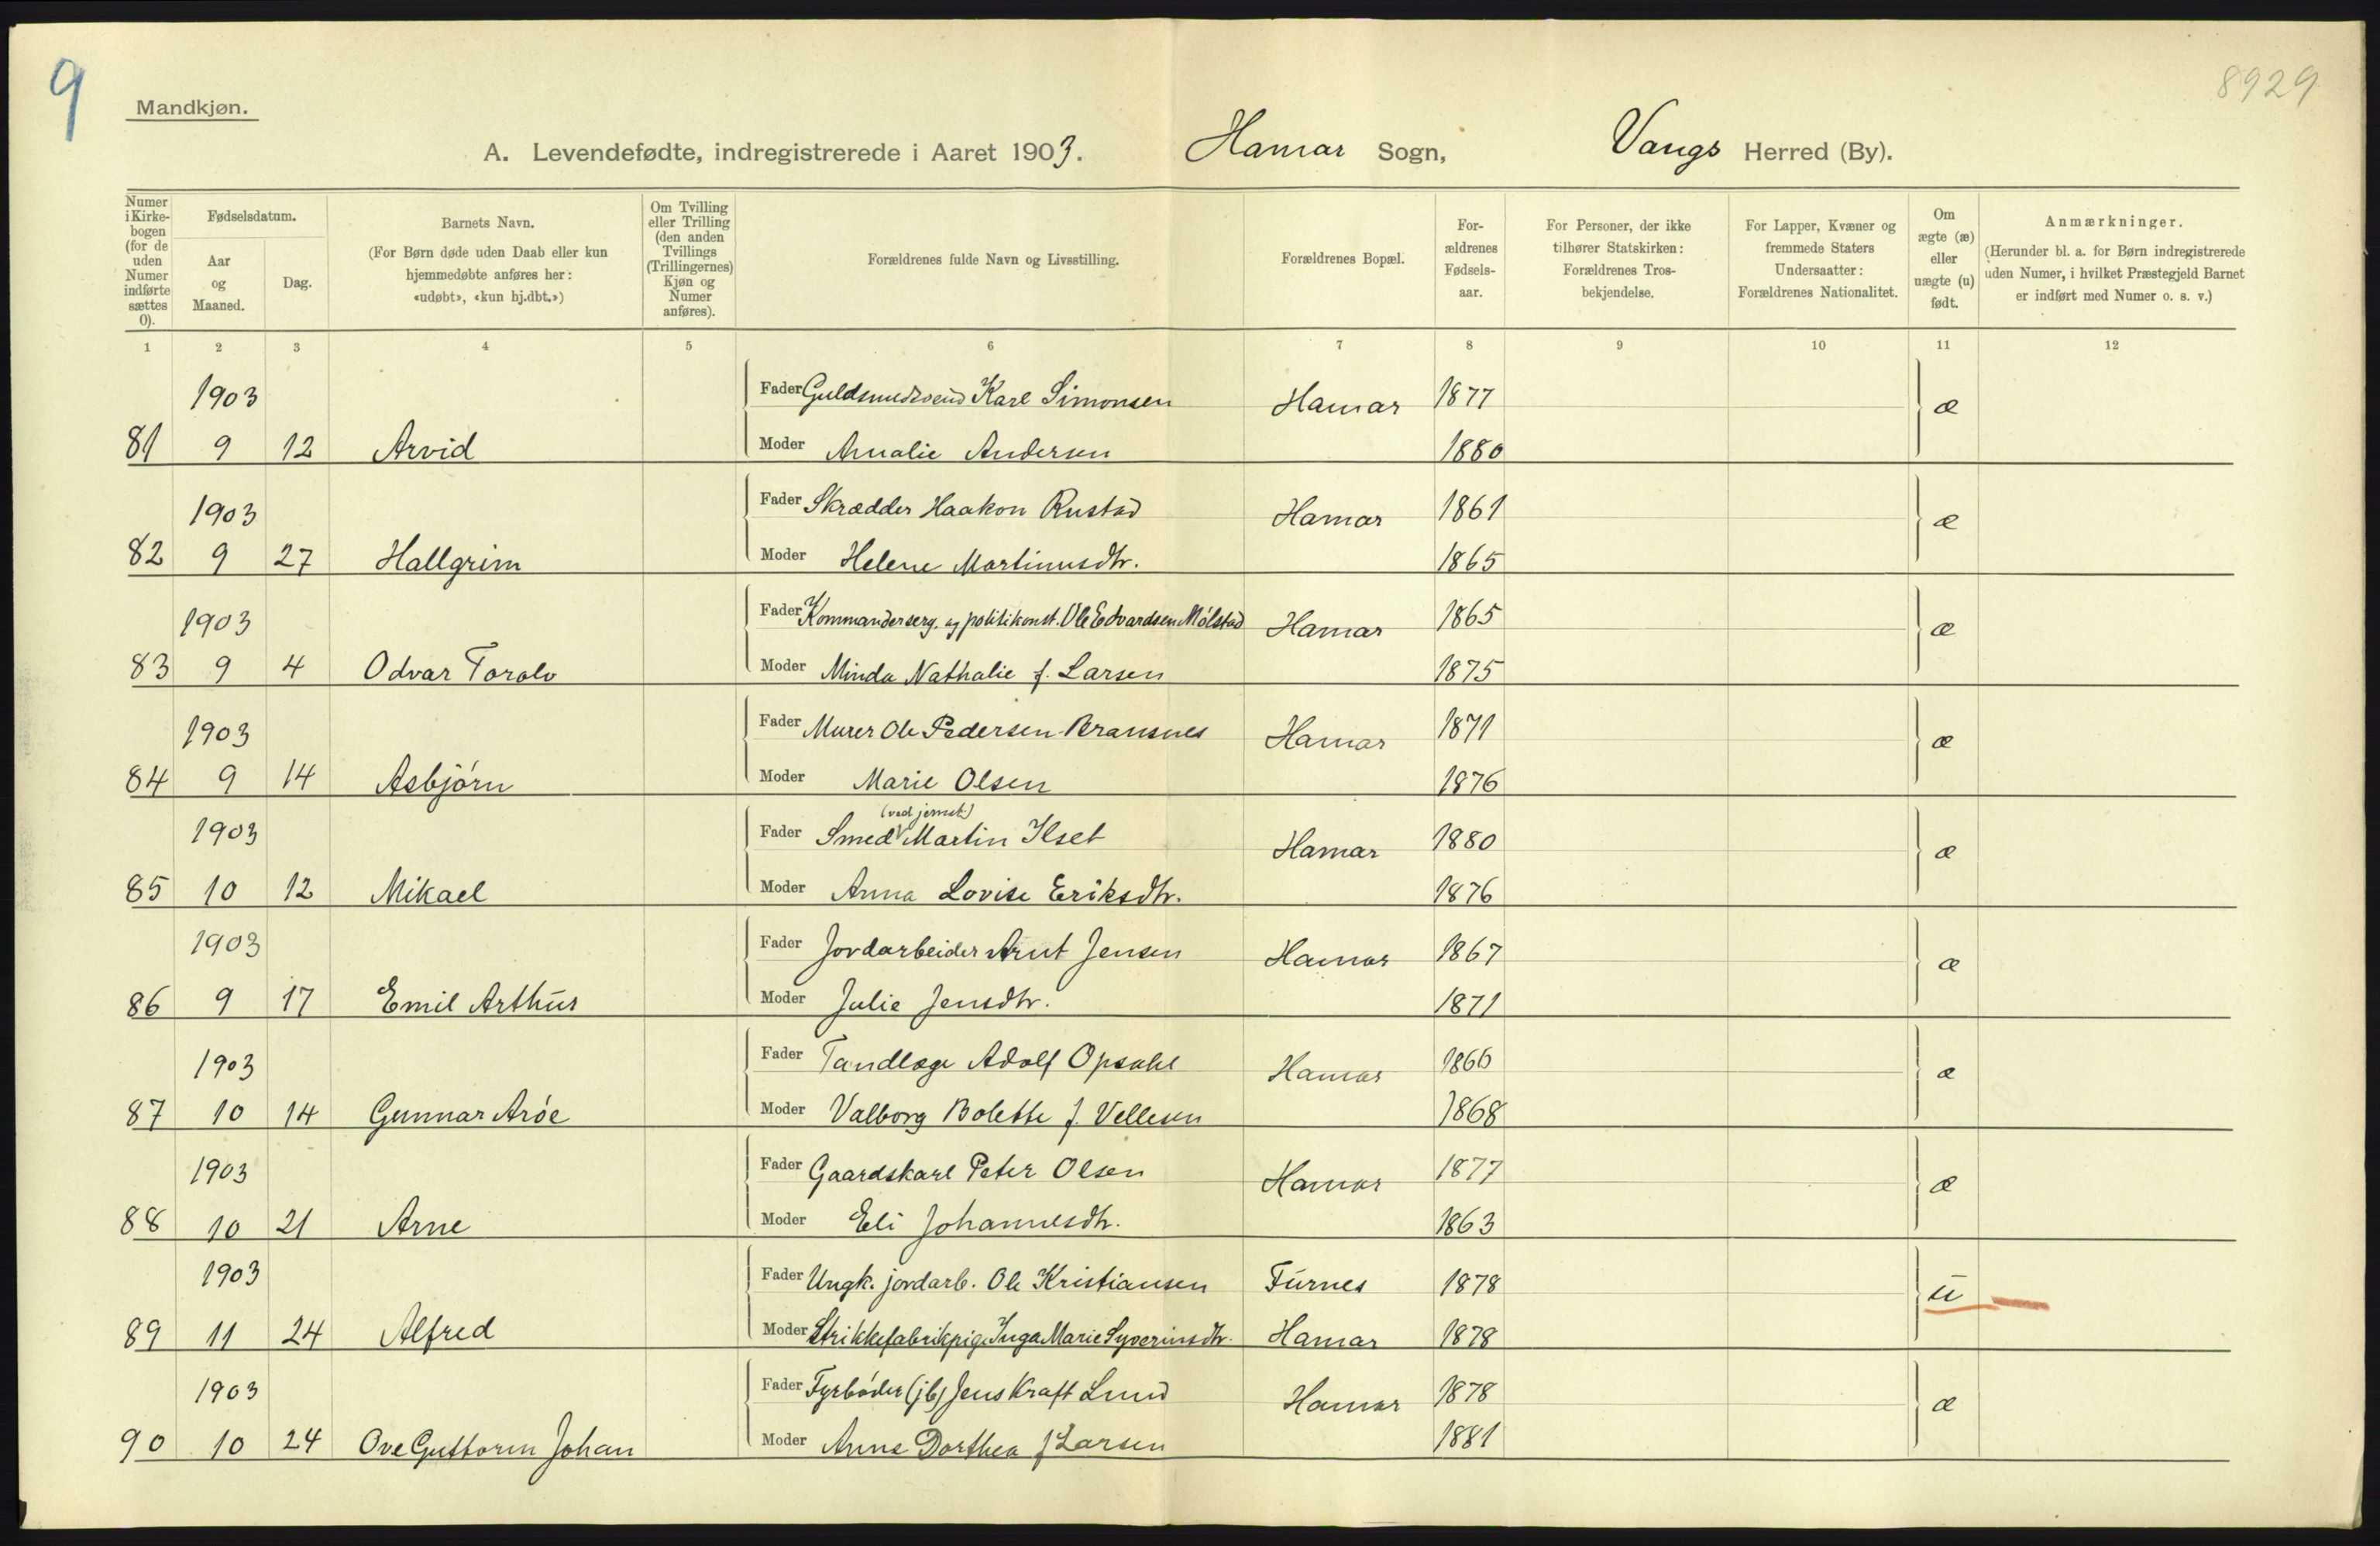 9
8929
Mandkjøn.
A. Levendefødte, indregistrerede i Aaret 1903. Hamar Sogn, Vangs Herred (By).
Numer i Kirkebogen (for de uden Numer indførte sættes 0).
Fødselsdatum.
Aar og Maaned.
Dag.
Barnets Navn.
(For Børn døde uden Daab eller kun hjemmedøbte anføres her: «udøbt», «kun hj.dbt.»)
Om Tvilling eller Trilling (den anden Tvillings (Trillingernes) Kjøn og Numer anføres).
Forældrenes fulde Navn og Livsstilling.
Forældrenes Bopæl.
For-ældrenes Fødsels-aar.
For Personer, der ikke tilhører Statskirken: Forældrenes Tros-bekjendelse.
For Lapper, Kvæner og fremmede Staters Undersaatter: Forældrenes Nationalitet.
Om ægte (æ) eller uægte (u) født.
Anmærkninger.
(Herunder bl. a. for Børn indregistrerede uden Numer, i hvilket Præstegjeld Barnet er indført med Numer o. s. v.)
1 2 3 4 5 6 7 8 9 10 11 12
1903 Fader Guldsmedsvend Karl Simonsen Hamar 1877 æ
81 9 12 Arvid Moder Amalie Andersen 1880
1903 Fader Skrædder Haakon Rustad Hamar 1861 æ
82 9 27 Hallgrim Moder Helene Martinusdtr. 1865
1903 Fader Kommandersserg. og politikonst. Ole Edvardsen Mólstad Hamar 1865 æ
83 9 4 Odvar Torolv Moder Minda Nathalie f. Larsen 1875
1903 Fader Murer Ole Pedersen Bransnes Hamar 1871 æ
84 9 14 Asbjórn Moder Marie Olsen 1876
(ved jernst.)
1903 Fader Smed Martin Ilset Hamar 1880 æ
85 10 12 Mikael Moder Anna Lovise Eriksdtr. 1876
1903 Fader Jordarbeider Arnt Jensen Hamar 1867 æ
86 9 17 Emil Arthur Moder Julie Jensdtr. 1871
1903 Fader Tandlæge Adolf Opsahl Hamar 1866 æ
87 10 14 Gunnar Aróe Moder Valborg Bolette f. Vellesen 1868
1903 Fader Gaardskarl Peter Olsen Hamar 1877 æ
88 10 21 Arne Moder Eli Johannesdtr. 1863
1903 Fader Ungk. jordarb. Ole Kristiansen Furnes 1878 u
89 11 24 Alfred Moder Strikkefabrikpige Inga Marie Syverinsdtr. Hamar 1878
1903 Fader Fyrbóder (jb) Jens Kraft Lund Hamar 1878 æ
90 10 24 Ove Guttorm Johan Moder Anna Dorthea f Larsen 1881